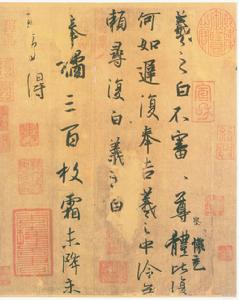 羲之白不審尊體比復
察 懷充
何如遲復奉告羲之中冷無
賴尋復白羲之白
奉橘三百枚霜未降未
可多得